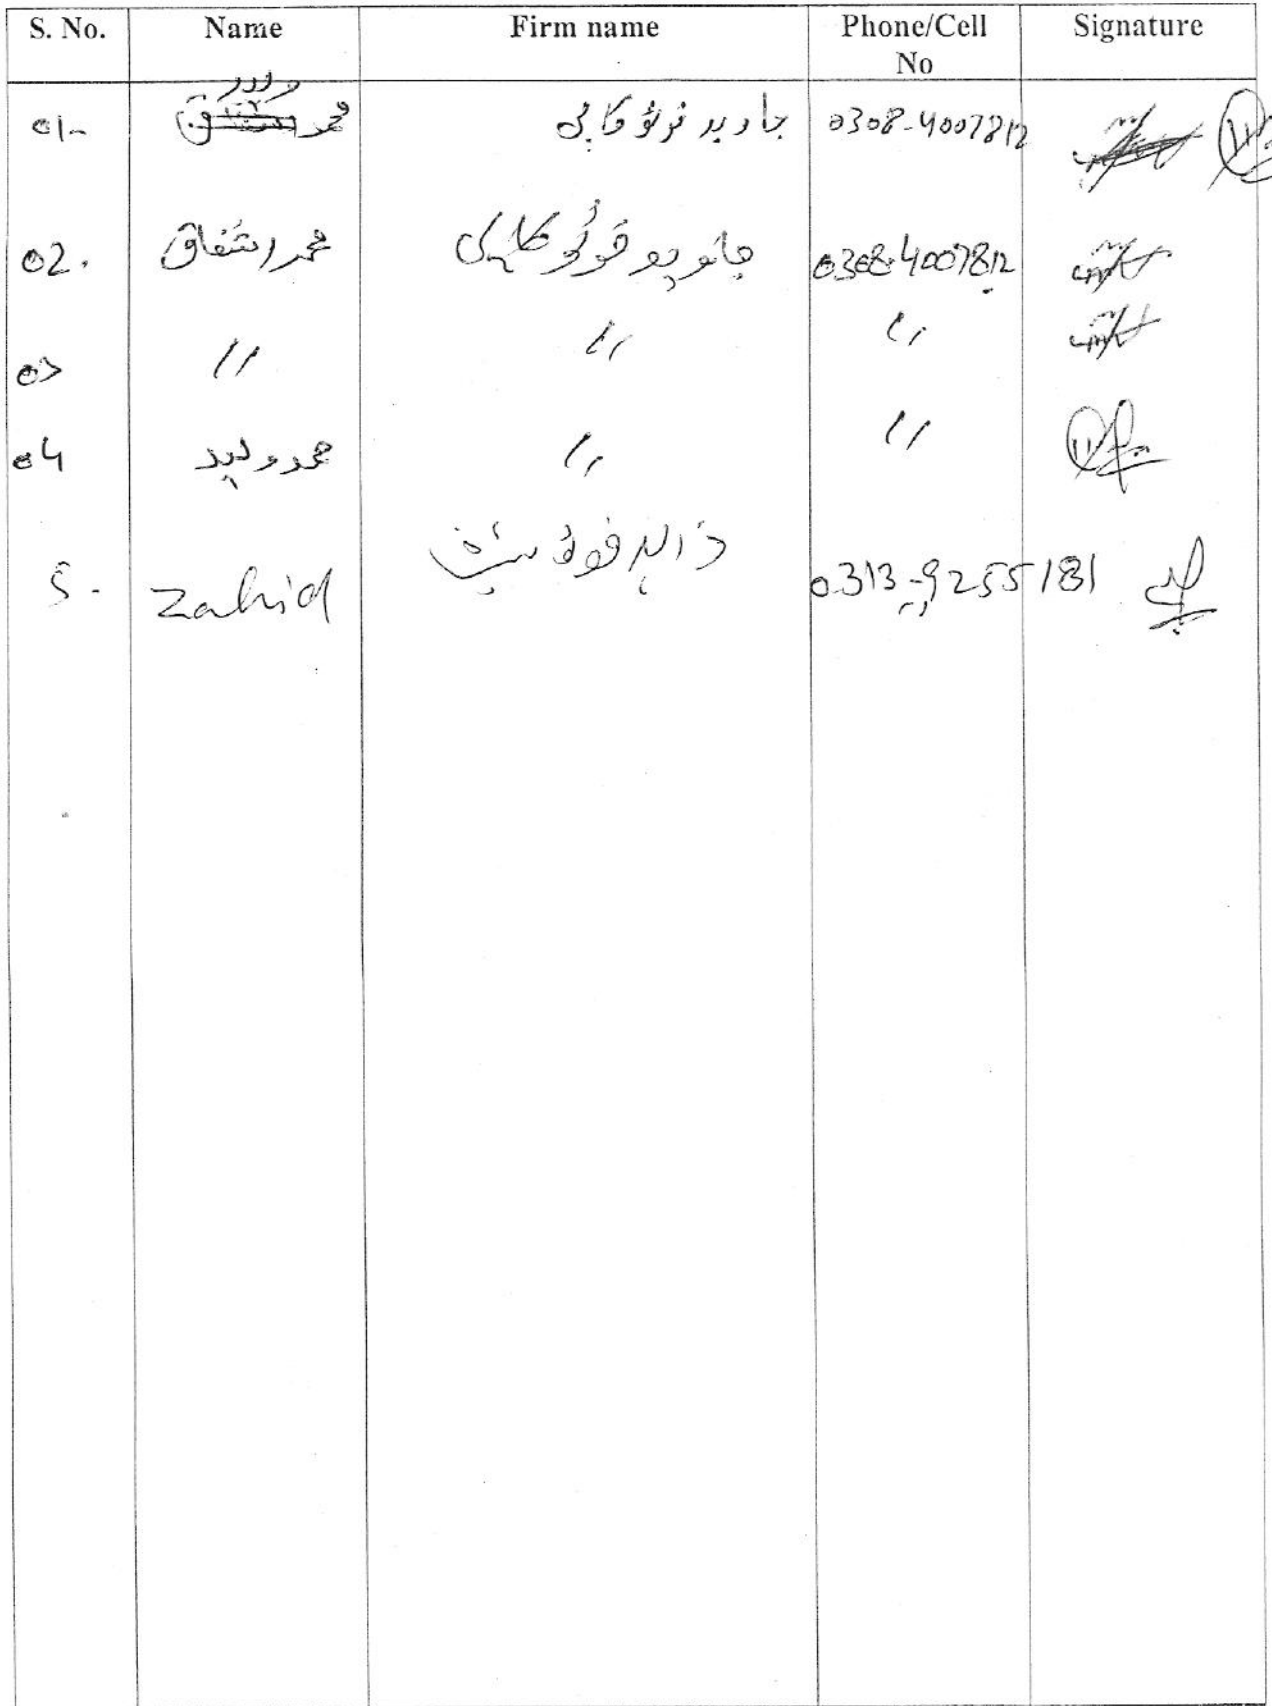 S. No. Name Firm name Phone/Cell No Signature
01- محمد ولید جاوید فوٹو کاپی 0308-4007812
02. محمد اشفاق جاوید فوٹو کاپی 0308-4007812
03 // // //
04 محمد ولید // //
5. Zahid زاہد فوٹو سٹیٹ 0313-9255181